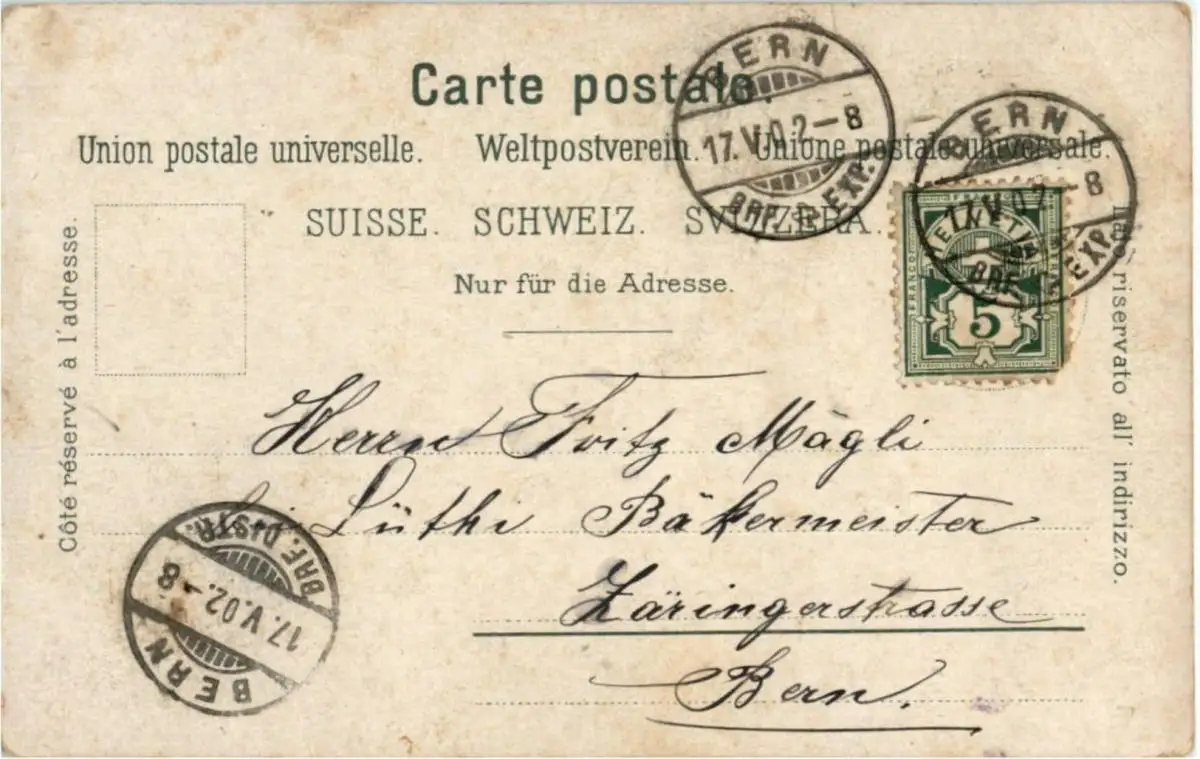 Carte postale.
Union postale universelle. Weltpostverein. Unione postale universale.
SUISSE. SCHWEIZ. SVIZZERA.
Nur für die Adresse.
Côté réservé à l'adresse.
Lato riservato all' indirizzo.
BERN
17.V.02–8
BRF. EXP.
BERN
17.V.02–8
BRF. EXP.
HELVETIA
FRANCO
5
Herrn Fritz Mägli
bei Lüthi Bäkermeister
Zäringerstrasse
Bern.
BRF. DISTR.
17.V.02.–8
BERN